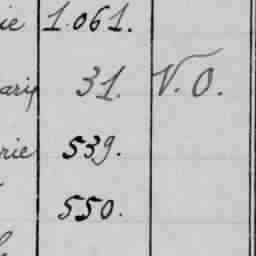 ie 1.061.
31. V.O.
rie 539.
550.